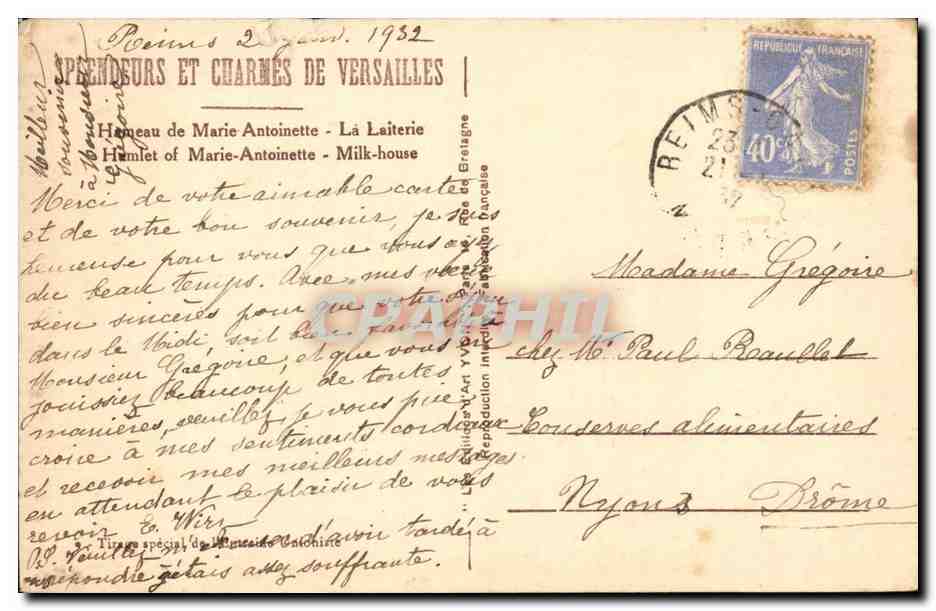 Reims 2 janv. 1932
SPLENDEURS ET CHARMES DE VERSAILLES
Hameau de Marie-Antoinette - La Laiterie
Hamlet of Marie-Antoinette - Milk-house
Meilleur
souvenir
à Monsieur
Grégoire
Merci de votre aimable carte
et de votre bon souvenir, je suis
heureuse pour vous que vous ayez
du beau temps. Avec mes vœux
bien sincères pour que votre séjour
dans le Midi soit bien favorable à
Monsieur Grégoire, et que vous en
jouissiez beaucoup de toutes
manières, veuillez je vous prie
croire à mes sentiments cordiaux
et recevoir mes meilleurs messages
en attendant le plaisir de vous
revoir E. Wirz
Tirage spécial de
P.S. Veuillez d'avoir tardé à
répondre j'étais assez souffrante.
Les Editions d'Art YVON, Paris Rue de Bretagne
Reproduction interdite Fabrication française
REPUBLIQUE FRANÇAISE
40c
POSTES
REIMS
23
21
32
Madame Grégoire
chez Mr Paul Raullet
Conserves alimentaires
Nyons Drôme
CPAPHIL